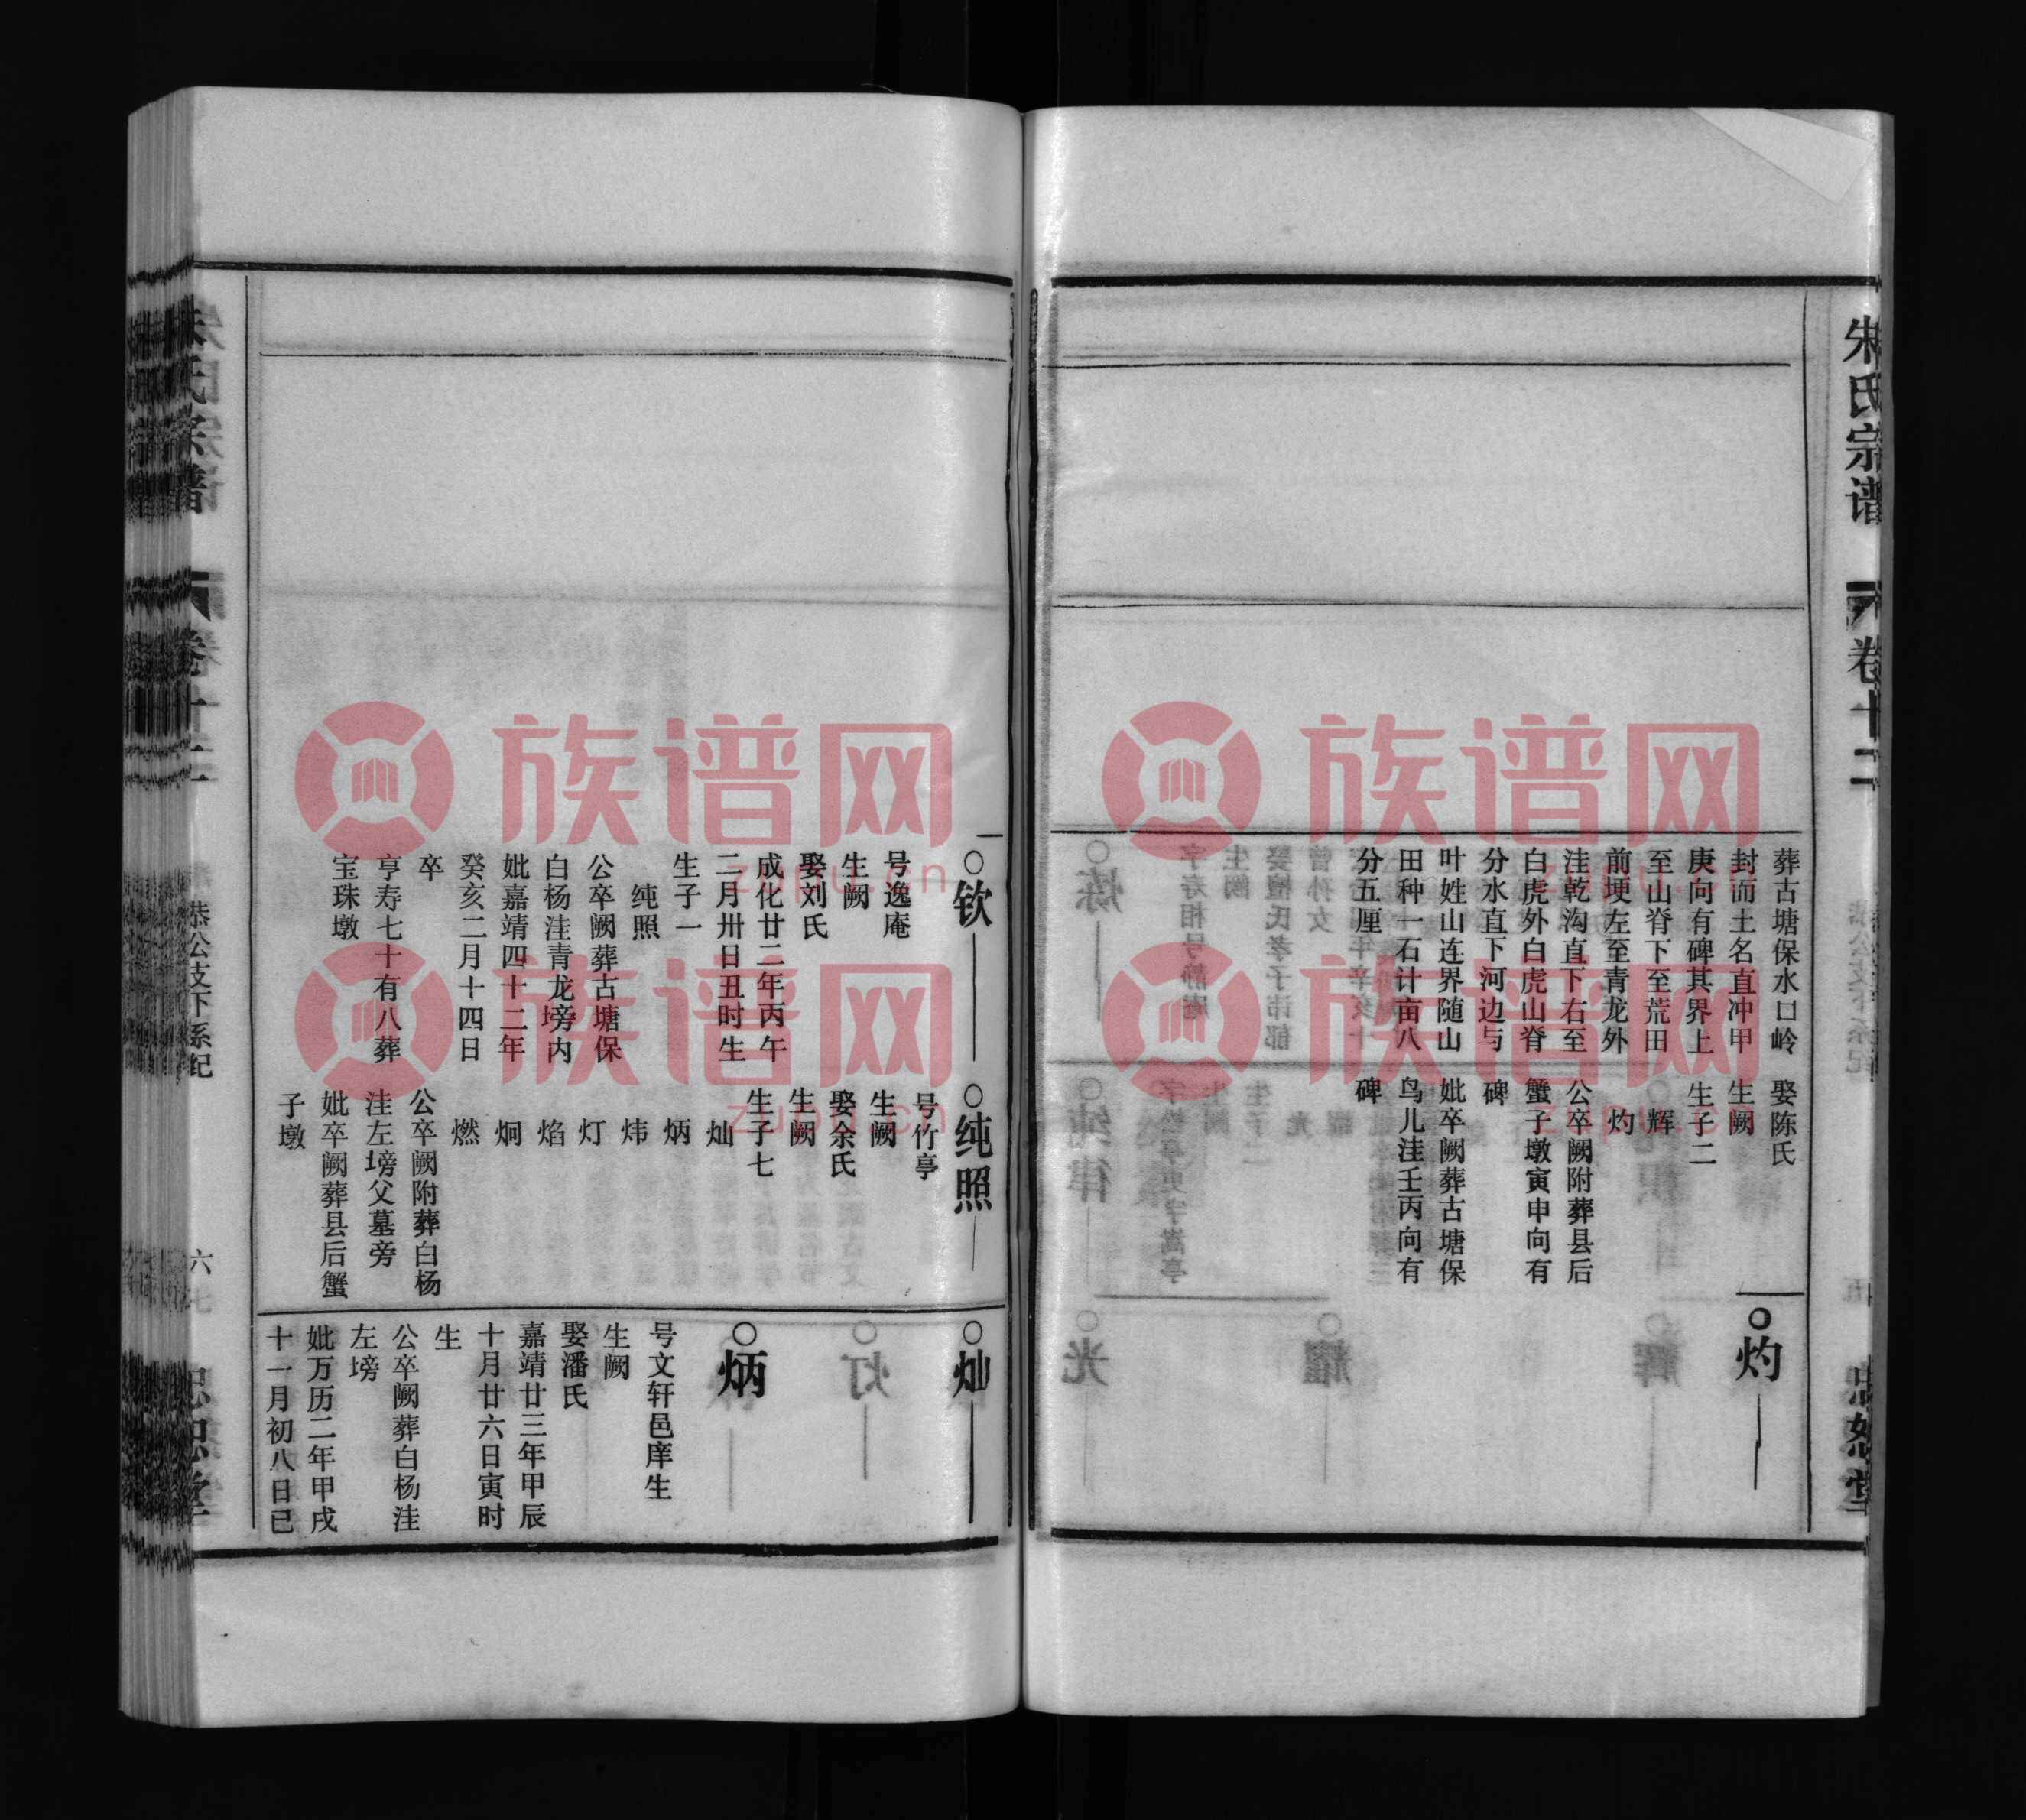 朱氏宗谱
卷十二
葬古塘保水口岭
封而土名直冲甲
庚向有碑其界上
至山脊下至荒田
前埂左至青龙外
洼乾沟直下右至
白虎外白虎山脊
分水直下河边与
叶姓山连界随山
田种一石计亩八
分五厘
娶陈氏
生阙
生子二
辉
灼
公卒阙附葬县后
蟹子墩寅申向有
碑
妣卒阙葬古塘保
鸟儿洼壬丙向有
碑
○灼
○钦
号逸庵
生阙
娶刘氏
成化廿二年丙午
二月卅日丑时生
生子一
纯照
公卒阙葬古塘保
白杨洼青龙塝内
妣嘉靖四十二年
癸亥二月十四日
卒
亨寿七十有八葬
宝珠墩
○纯照
号竹亭
生阙
娶余氏
生阙
生子七
灿
炳
炜
灯
焰
炯
燃
公卒阙附葬白杨
洼左塝父墓旁
妣卒阙葬县后蟹
子墩
○灿
○炳
号文轩邑庠生
生阙
娶潘氏
嘉靖廿三年甲辰
十月廿六日寅时
生
公卒阙葬白杨洼
左塝
妣万历二年甲戌
十一月初八日已
恭公支下系纪
六
族谱网
zupu.cn
族谱网
zupu.cn
族谱网
zupu.cn
族谱网
zupu.cn